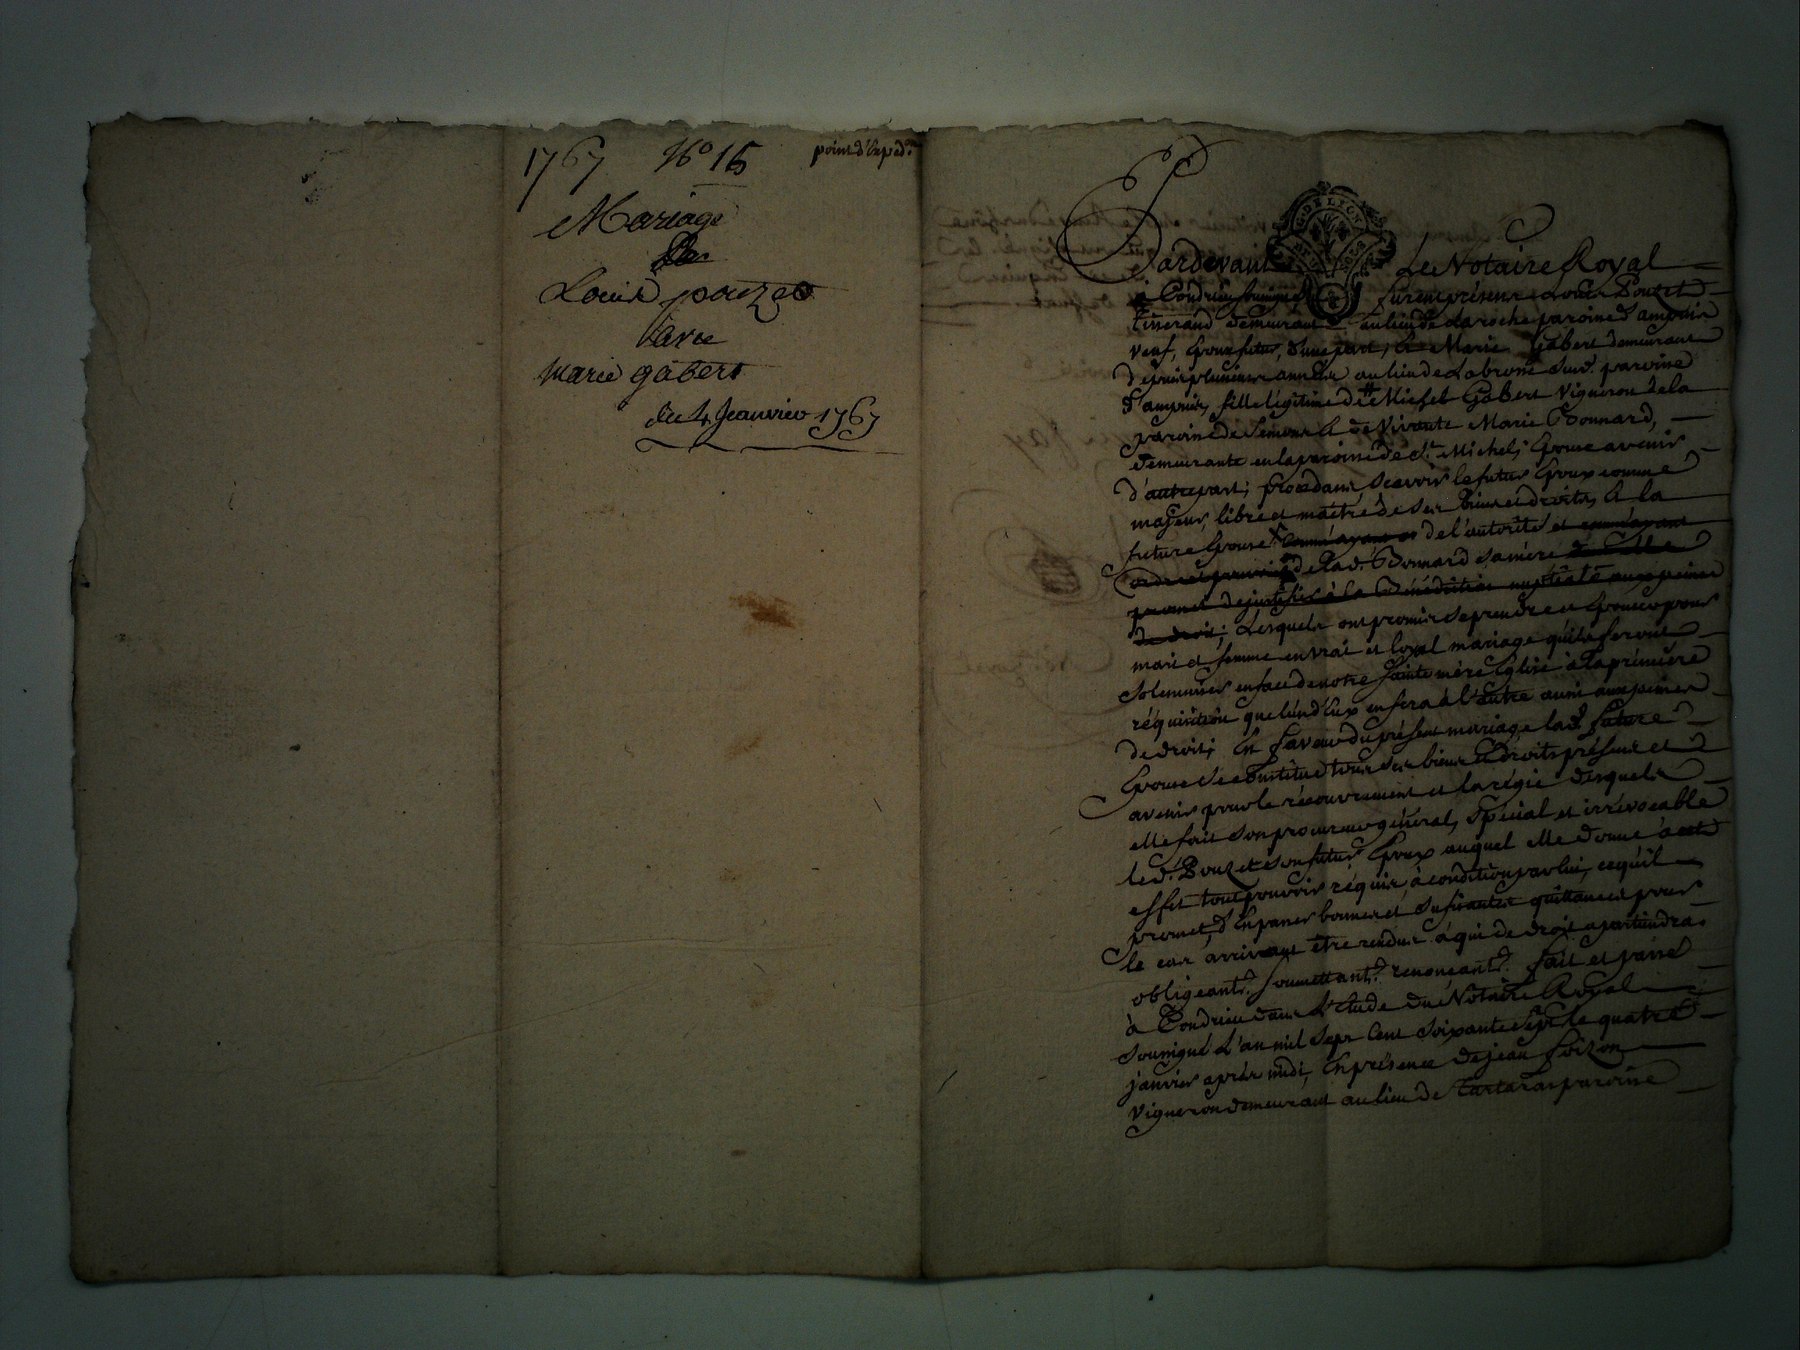 1767 N° 16 point d'exped.on
Mariage
De
Louis pouzet
avec
marie gabert
du 4 Jeanvier 1767
G. DE LYON
Pardevant Le Notaire Royal
à Condrieu soussigné furent présens Louis Pouzet
Tisserand demeurant au lieu de la roche paroisse d'ampuis
veuf, Epoux futur, d'une part, Et Marie Gabert demeurant
depuis plusieurs années au lieu de Labrosse sud. paroisse
d'ampuis, fille légitime de Michel Gabert Vigneron de la
paroisse de Semons Et de Vivante Marie Bonnard,
demeurante en la paroisse de St. Michel, Epouse avenir
d'autre part; procédans Scavoir le futur Epoux comme
majeur, libre et maître de ses biens et droits, Et la
future Epouse de l'autorité et
de lad. Bonnard sa mère
promet de justifier à la Bénédiction nuptiale aux peines
de droit; Lesquels ont promis se prendre et Epouser pour
mari et femme en vrai et loyal mariage qu'ils feront
Solemniser en face de notre Sainte mère Eglise à la première
réquisition que l'un d'Eux en fera à l'autre aussi aux peines
de droit; En faveur du présent mariage lad. future
Epouse se constitue tous ses biens Et droits présens et
avenir pour le recouvrement et la régie desquels
elle fait son procureur général, spécial et irrévocable
led. Pouzet son futur Epoux auquel elle donne à cet
effet tout pouvoir réquis, à condition par lui, ce qu'il
promet, d'En passer bonnes et sufisantes quittances pour
le cas arrivant être rendus à qui de droit apartiendra.
obligeant.s soumettant.s renonceant.s fait et passé
à Condrieu dans L'Etude du Notaire Royal
soussigné L'an mil sept Cent soixante sept le quatre
janvier après midi, En présence de jean Loizon
Vigneron demeurant au lieu de Tartaras paroisse